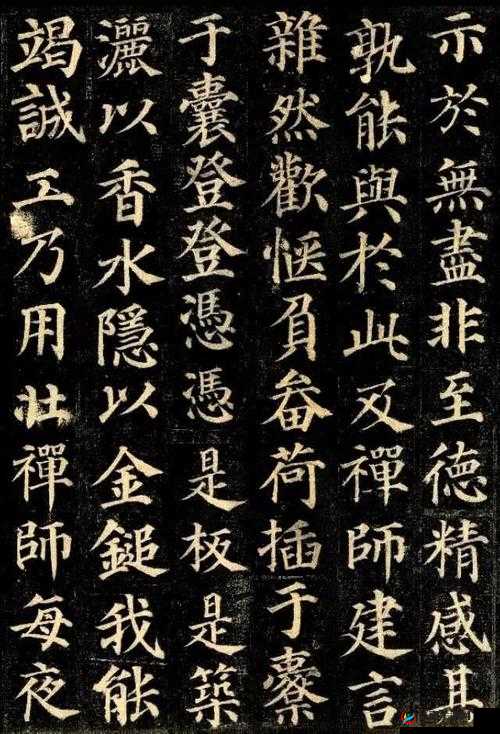 示於無盡非至徳精感其
孰能與於此及禪師建言
雜然歡愜負畚荷插于橐
于囊登登憑憑是板是築
灑以香水隱以金鎚我能
竭誠工乃用壯禪師每夜